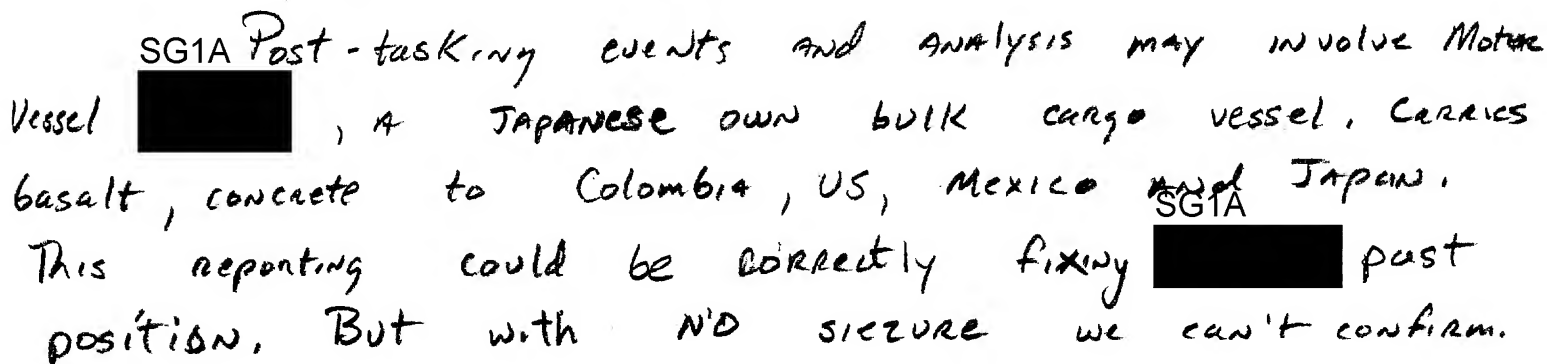 SG1A Post-tasking events and analysis may involve Motor
Vessel , A JAPANESE own bulk cargo vessel. Carries
basalt, concrete to Colombia, US, Mexico and JAPAN.
SG1A
This reporting could be correctly fixing past
position. But with NO siezure we can't confirm.